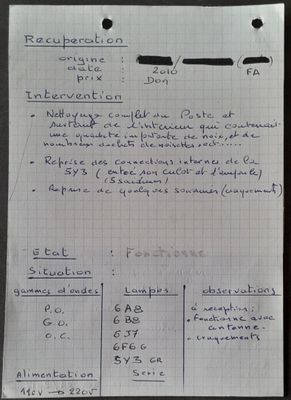 Recuperation
origine :
date : 2010 FA
prix : Don
Intervention
• Nettoyage complet du Poste et
surtout de l'interieur qui contenait
une quantité importante de noix, et de
nombreux dechets de noisettes ect.....
• Reprise des connections internes de la
5Y3 (entre son culot et l'ampoule)
(5 soudures)
• Reprise de quelques soudures (craquements)
Etat : Fonctionne
Situation :
gammes d'ondes Lampes observations
P.O. 6A8 à reception :
G.O. 6B8 • Fonctionne avec
O.C. 6J7 antenne.
6F6 G • craquements
5Y3 GR
Alimentation Serie
110V → 220V